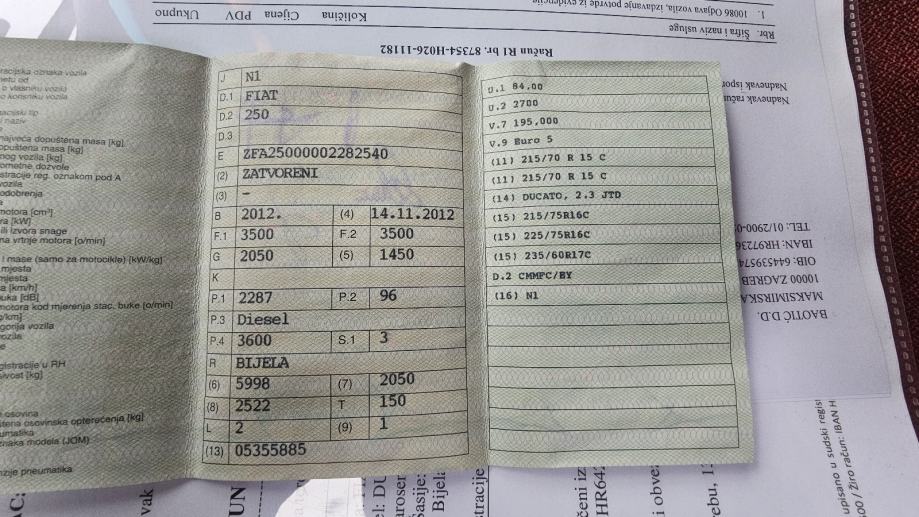 1. 10086 Odjava vozila, izdavanje potvrde iz evidencije
Rbr. Šifra i naziv usluge
Količina Cijena PDV Ukupno
Račun R1 br. 87354-H026-11182
Nadnevak ispor
Nadnevak račun
TEL: 012/900-0
IBAN: HR97236
OIB: 644539574
10000 ZAGREB
MAKSIMIRSKA
BAOTIĆ D.D.
racijska oznaka vozila
metu od
o vlasniku vozila
o korisniku vozila
racijski tip
i naziv
najveća dopuštena masa [kg]
opuštena masa [kg]
nog vozila [kg]
ometne dozvole
stracije reg. oznakom pod A
vozila
odobrenja
motora [cm³]
ra [kW]
ili izvora snage
na vrtnje motora [o/min]
i mase (samo za motocikle) [kW/kg]
mjesta
mjesta
a [km/h]
buka [dB]
motora kod mjerenja stac. buke [o/min]
gorija vozila
vozila
gistracije u RH
osovina
štena osovinska opterećenja [kg]
eumatika
znaka modela (JOM)
nzije pneumatika
J N1
D.1 FIAT
D.2 250
D.3
E ZFA25000002282540
(2) ZATVORENI
(3) -
B 2012. (4) 14.11.2012
F.1 3500 F.2 3500
G 2050 (5) 1450
K
P.1 2287 P.2 96
P.3 Diesel
P.4 3600 S.1 3
R BIJELA
(6) 5998 (7) 2050
(8) 2522 T 150
L 2 (9) 1
(13) 05355885
U.1 84,00
U.2 2700
V.7 195,000
V.9 Euro 5
(11) 215/70 R 15 C
(11) 215/70 R 15 C
(14) DUCATO, 2.3 JTD
(15) 215/75R16C
(15) 225/75R16C
(15) 235/60R17C
D.2 CMMFC/BY
(16) N1
upisano u sudski regist